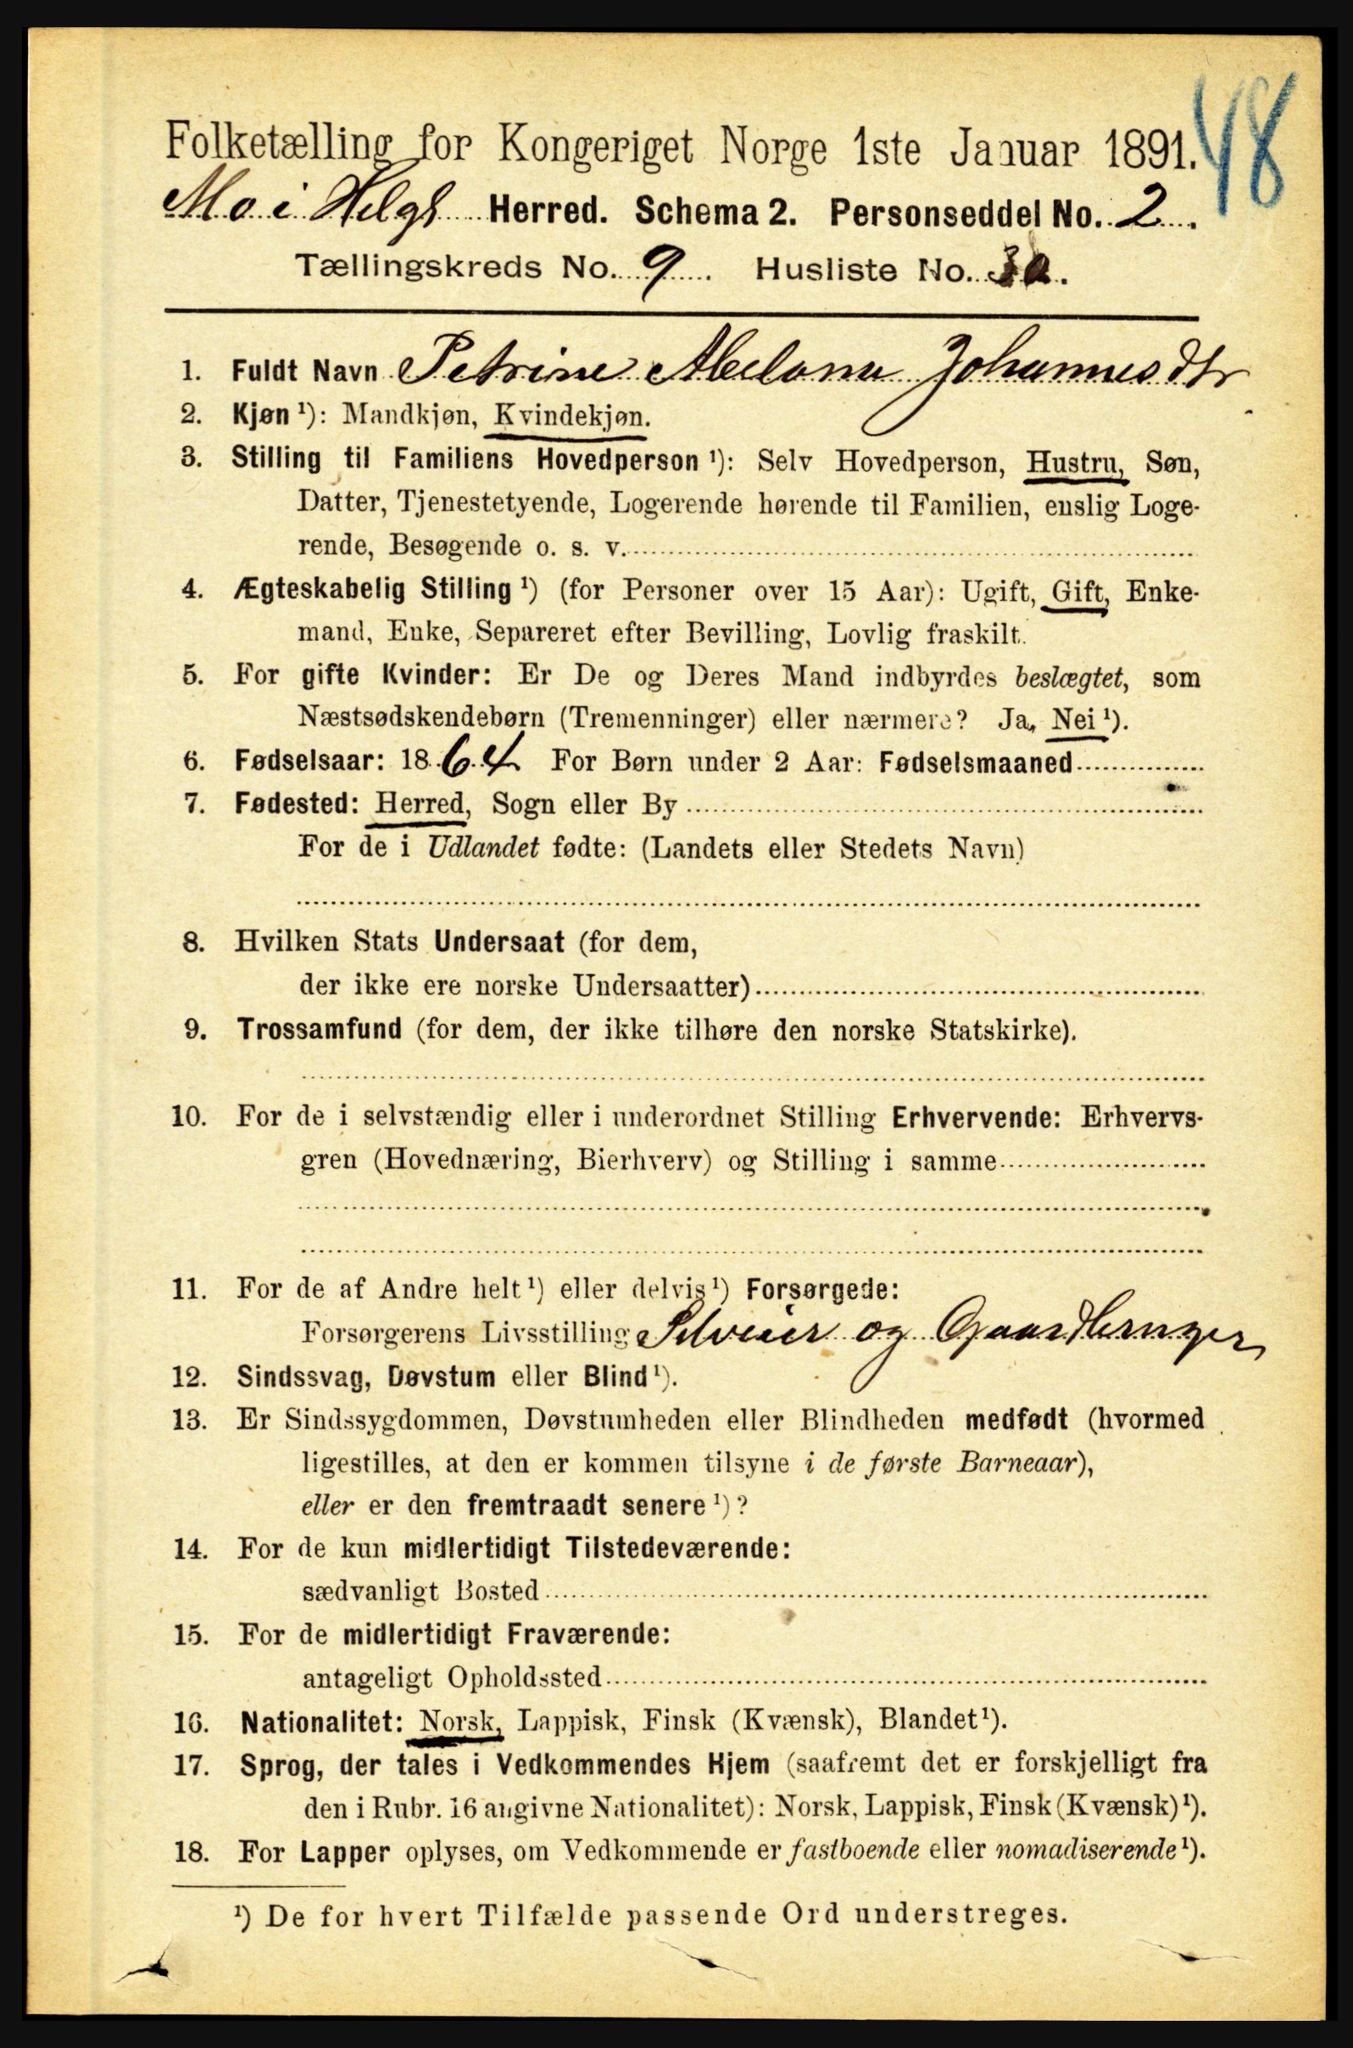 48
Folketælling for Kongeriget Norge 1ste Januar 1891.
Mo i Helgl Herred. Schema 2. Personseddel No. 2.
Tællingskreds No. 9. Husliste No. 30.
1. Fuldt Navn Petrine Abelona Johannesdtr
2. Kjøn ¹): Mandkjøn, Kvindekjøn.
3. Stilling til Familiens Hovedperson ¹): Selv Hovedperson, Hustru, Søn,
Datter, Tjenestetyende, Logerende hørende til Familien, enslig Loge-
rende, Besøgende o. s. v.
4. Ægteskabelig Stilling ¹) (for Personer over 15 Aar): Ugift, Gift, Enke-
mand, Enke, Separeret efter Bevilling, Lovlig fraskilt.
5. For gifte Kvinder: Er De og Deres Mand indbyrdes beslægtet, som
Næstsødskendebørn (Tremenninger) eller nærmere? Ja, Nei ¹).
6. Fødselsaar: 1864 For Børn under 2 Aar: Fødselsmaaned
7. Fødested: Herred, Sogn eller By
For de i Udlandet fødte: (Landets eller Stedets Navn)
8. Hvilken Stats Undersaat (for dem,
der ikke ere norske Undersaatter)
9. Trossamfund (for dem, der ikke tilhøre den norske Statskirke).
10. For de i selvstændig eller i underordnet Stilling Erhvervende: Erhvervs-
gren (Hovednæring, Bierhverv) og Stilling i samme
11. For de af Andre helt ¹) eller delvis ¹) Forsørgede:
Forsørgerens Livsstilling Selveier og Gaardbruger
12. Sindssvag, Døvstum eller Blind ¹).
13. Er Sindssygdommen, Døvstumheden eller Blindheden medfødt (hvormed
ligestilles, at den er kommen tilsyne i de første Barneaar),
eller er den fremtraadt senere ¹)?
14. For de kun midlertidigt Tilstedeværende:
sædvanligt Bosted
15. For de midlertidigt Fraværende:
antageligt Opholdssted
16. Nationalitet: Norsk, Lappisk, Finsk (Kvænsk), Blandet ¹).
17. Sprog, der tales i Vedkommendes Hjem (saafremt det er forskjelligt fra
den i Rubr. 16 angivne Nationalitet): Norsk, Lappisk, Finsk (Kvænsk) ¹).
18. For Lapper oplyses, om Vedkommende er fastboende eller nomadiserende ¹).
¹) De for hvert Tilfælde passende Ord understreges.